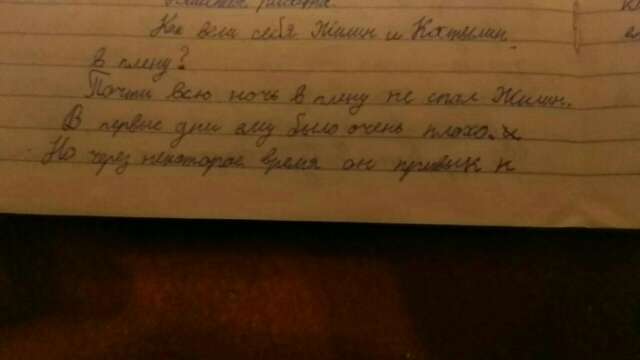 Как вели себя Жилин и Костылин
в плену?
Почти всю ночь в плену не спал Жилин.
В первые дни ему было очень плохо. и
Но через некоторое время он привык к